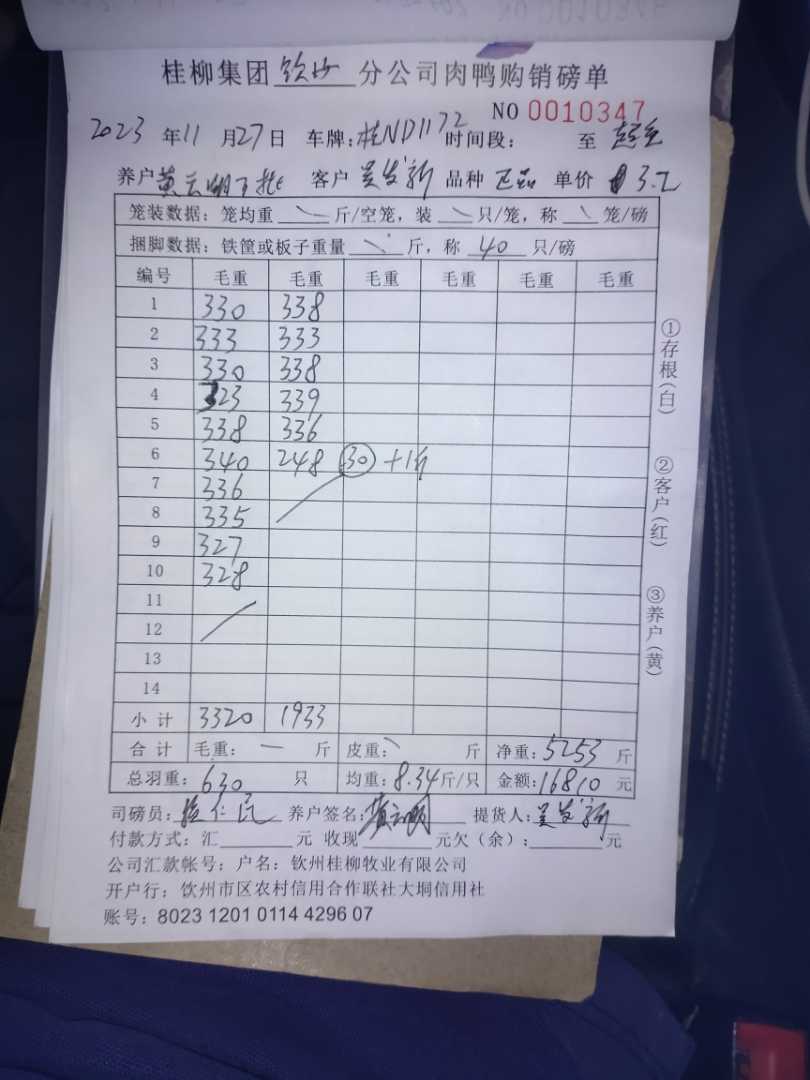 桂柳集团 钦州 分公司肉鸭购销磅单
NO 0010347
2023 年 11 月 27 日 车牌: 桂ND1172 时间段: 至
养户 黄云明 客户 吴发新 品种 正品 单价 3.2
笼装数据: 笼均重 斤/空笼, 装 只/笼, 称 笼/磅
捆脚数据: 铁筐或板子重量 斤, 称 40 只/磅
编号 毛重 毛重 毛重 毛重 毛重 毛重
1 330 338
2 333 333
3 330 338
4 323 339
5 338 336
6 340 248 30 +1斤
7 336
8 335
9 327
10 328
11
12
13
14
小计 3320 1933
合计 毛重: 一 斤 皮重: 斤 净重: 5253 斤
总羽重: 630 只 均重: 8.34 斤/只 金额: 16810 元
司磅员: 养户签名: 黄云明 提货人: 吴发新
付款方式: 汇 元 收现 元欠(余): 元
公司汇款帐号: 户名: 钦州桂柳牧业有限公司
开户行: 钦州市区农村信用合作联社大垌信用社
账号: 8023 1201 0114 4296 07
①存根(白)
②客户(红)
③养户(黄)